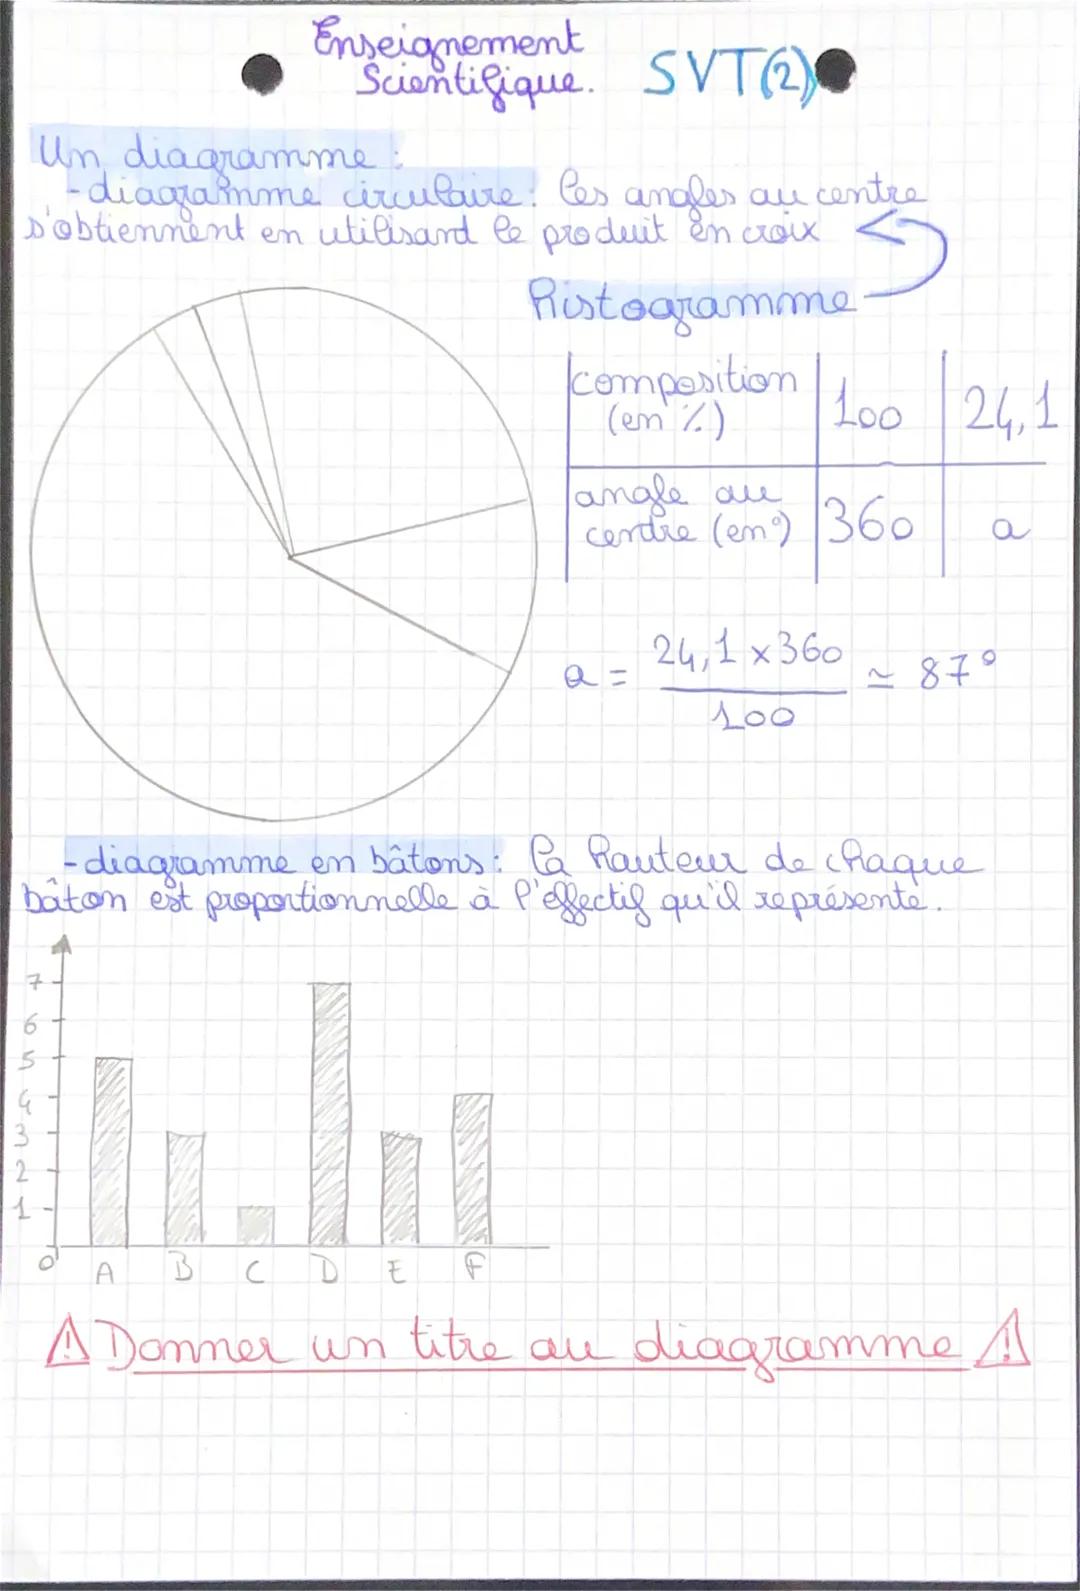 Enseignement
Scientifique.
SVT(2)
Un diagramme :
- diagramme circulaire : les angles au centre
s'obtiennent en utilisant le produit en croix
histogramme
composition (en %) | 100 | 24,1
angle au centre (en °) | 360 | a
a = 24,1 x 360 / 100 ≃ 87°
- diagramme en bâtons : la hauteur de chaque
bâton est proportionnelle à l'effectif qu'il représente.
7
6
5
4
3
2
1
0
A B C D E F
⚠ Donner un titre au diagramme ⚠